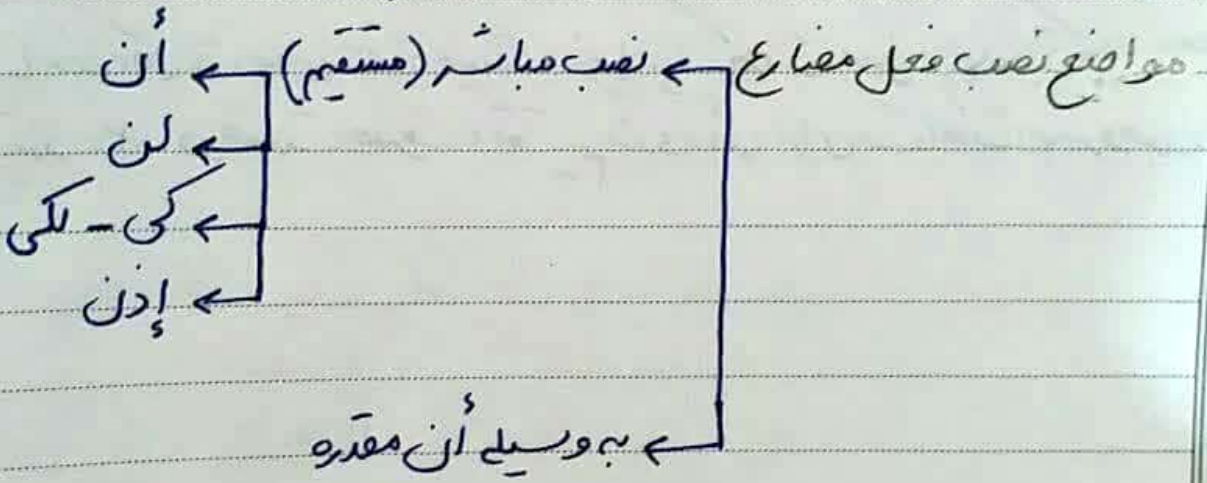 مواضع نصب فعل مضارع ← نصب مباشر (مستقیم) ← أن
← لن
← کی - لکی
← إذن
← به وسیله أن مقدره